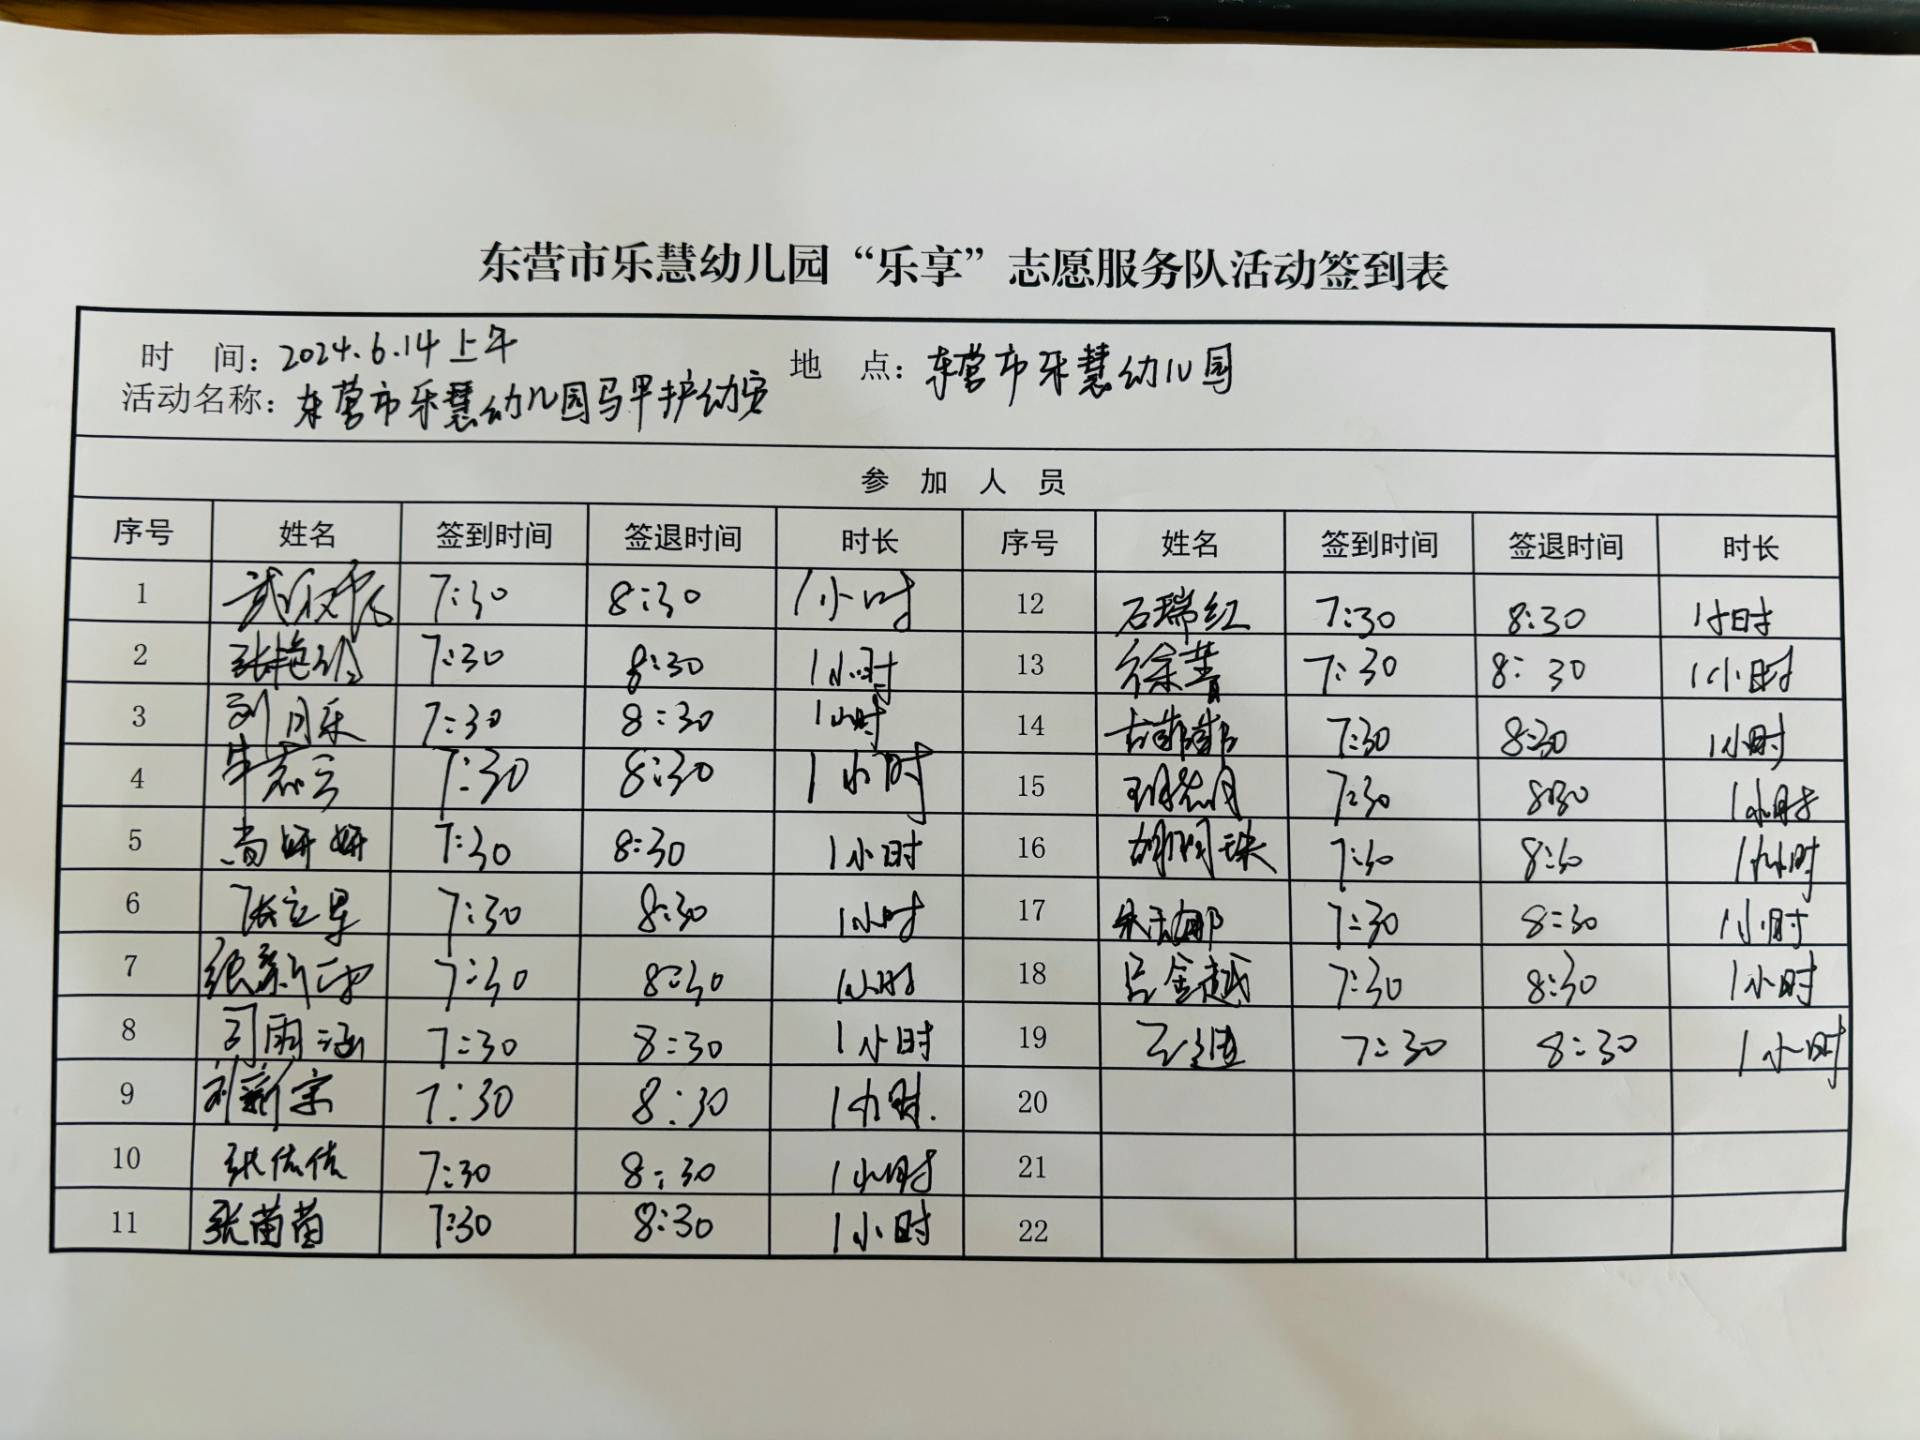 东营市乐慧幼儿园“乐享”志愿服务队活动签到表
时 间：2024.6.14上午 地 点：东营市乐慧幼儿园
活动名称：东营市乐慧幼儿园马甲护幼安
参 加 人 员
序号 姓名 签到时间 签退时间 时长 序号 姓名 签到时间 签退时间 时长
1 7:30 8:30 1小时 12 石瑞红 7:30 8:30 1小时
2 7:30 8:30 1小时 13 徐菁 7:30 8:30 1小时
3 刘月乐 7:30 8:30 1小时 14 7:30 8:30 1小时
4 牛志云 7:30 8:30 1小时 15 7:30 8:30 1小时
5 尚妍妍 7:30 8:30 1小时 16 胡明珠 7:30 8:30 1小时
6 张立星 7:30 8:30 1小时 17 7:30 8:30 1小时
7 张新 7:30 8:30 1小时 18 吕金越 7:30 8:30 1小时
8 司雨涵 7:30 8:30 1小时 19 7:30 8:30 1小时
9 刘新宗 7:30 8:30 1小时. 20
10 张佳佳 7:30 8:30 1小时 21
11 张苗苗 7:30 8:30 1小时 22